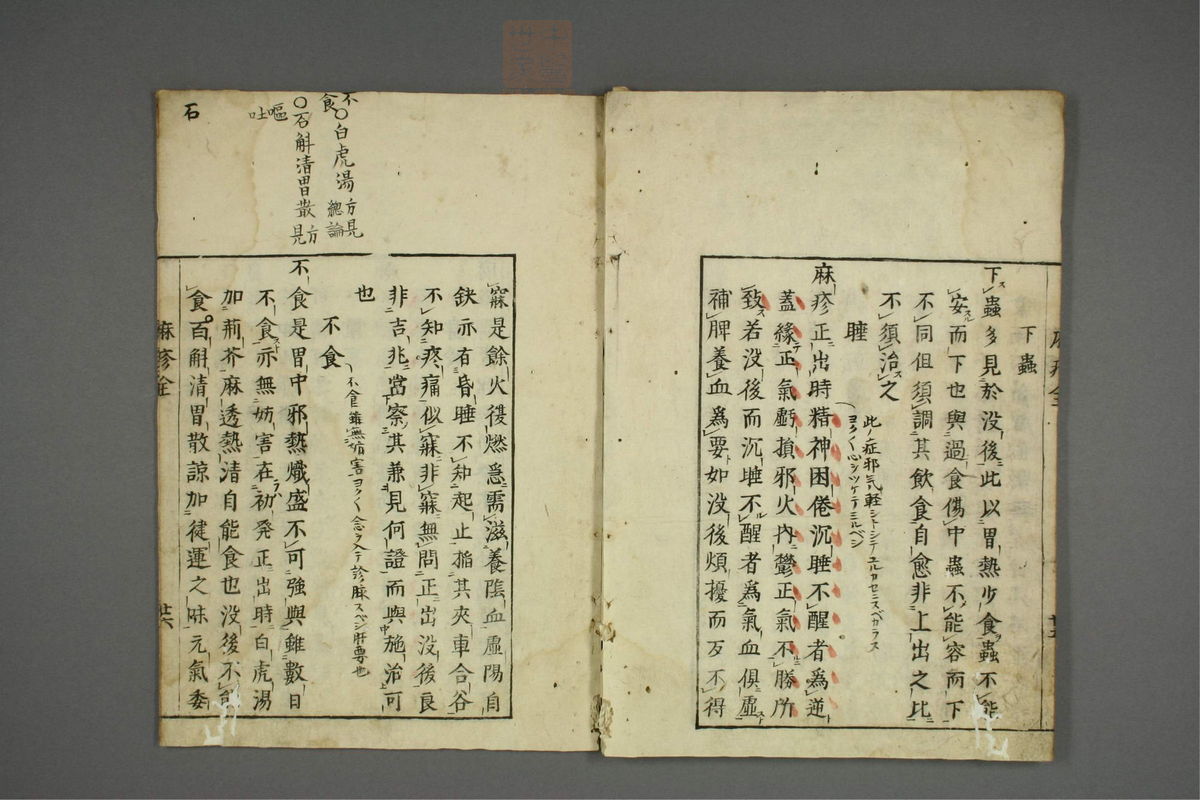 下蟲
下蟲多見於没後此以胃熱少食蟲不能
安而下也與過食傷中蟲不能容而下
不同但須調其飲食自愈非上出之比
不須治之
睡
麻疹正出時精神困倦沉睡不醒者為逆
蓋緣正氣虧損邪火內鬱正氣不勝所
致若没後而沉睡不醒者為氣血俱虚
補脾養血為要如没後煩擾而反不得
寐是餘火復燃急需滋養陰血虚陽自
鈌亦有昏睡不知起止指其夾車合谷
不知疼痛似寐非寐無問正出没後良
非吉兆當察其兼見何證而與施治可
也
不食
不食雖無妨害ヨク〱念ヲ入テ診脉スベシ肝要也
不食是胃中邪熱熾盛不可強與雖數日
不食亦無妨害在初発正出時白虎湯
加荊芥麻透熱清自能食也没後不
食石斛清胃散諒加健運之味元氣委
麻疹全
廿六
不食
○白虎湯方見總論
嘔吐
○石斛清胃散方見
石